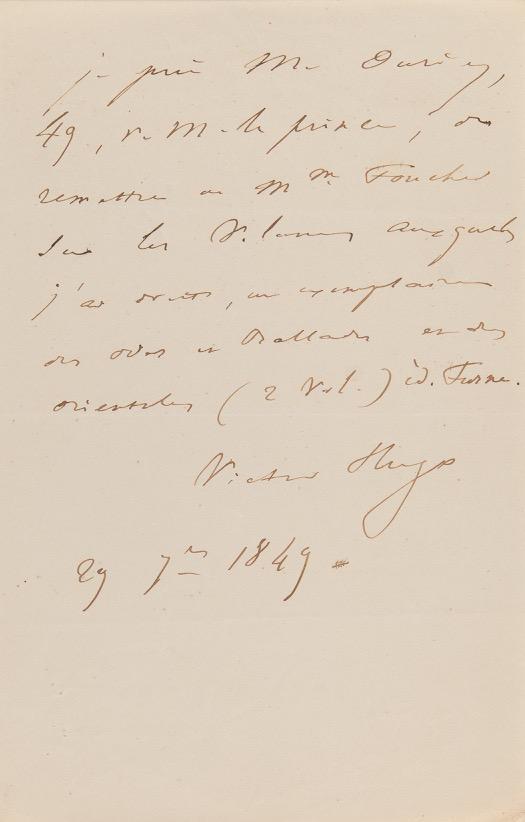 je prie M. Duriez,
49, r. M. le prince, de
remettre à Mme Foucher
sur les Volumes auxquels
j'ai droit, un exemplaire
des odes et Ballades et des
orientales (2 Vol.) éd. Furne.
Victor Hugo
29 7bre 1849